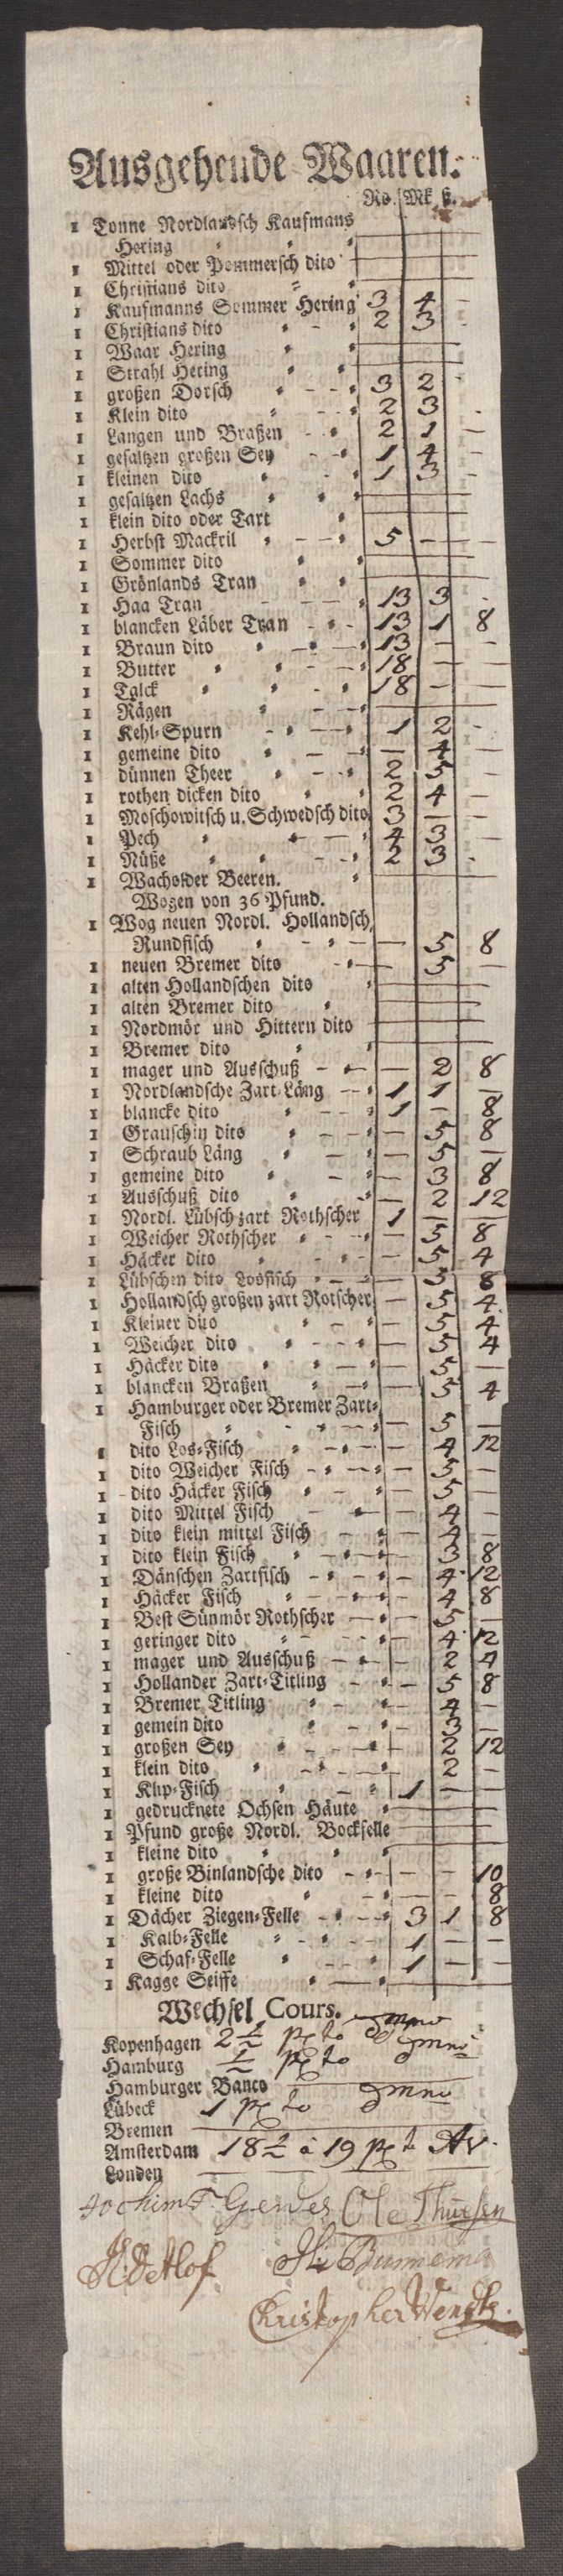 Ausgehende Waaren.
Rd. Mk ß.
1 Tonne Nordlandsch Kaufmans
Hering
1 Mittel oder Pommersch dito
1 Christians dito
1 Kaufmanns Sommer Hering 3 4 -
1 Christians dito 2 3
1 Waar Hering
1 Strahl Hering
1 großen Dorsch 3 2
1 Klein dito 2 3
1 Langen und Braßen 2 1 -
1 gesaltzen großen Sey 1 4 -
1 kleinen dito 1 3 -
1 gesaltzen Lachs
1 klein dito oder Tart
1 Herbst Mackril 5 - -
1 Sommer dito
1 Grönlands Tran
1 Haa Tran 13 3
1 blancken Läber Tran 13 1 8
1 Braun dito 13 - -
1 Butter 18 - -
1 Talck 18 - -
1 Rägen
1 Kehl-Spurn 1 2 -
1 gemeine dito - 4 -
1 dünnen Theer 2 5 -
1 rothen dicken dito 2 4 -
1 Moschowitsch u. Schwedsch dito 3
1 Pech 4 3 -
1 Nüße 2 3
1 Wacholder Beeren.
Wogen von 36 Pfund.
1 Wog neuen Nordl. Hollandsch
Rundfisch - 5 8
1 neuen Bremer dito - 5 -
1 alten Hollandschen dito
1 alten Bremer dito
1 Nordmör und Hittern dito
1 Bremer dito
1 mager und Ausschuß - 2 8
1 Nordlandsche Zart-Läng 1 1 -
1 blancke dito 1 - 8
1 Grauschin dito - 5 8
1 Schraub Läng - 5 -
1 gemeine dito - 3 8
1 Ausschuß dito - 2 12
1 Nordl. Lübsch zart Rothscher 1 - -
1 Weicher Rothscher - 5 8
1 Häcker dito - 5 4
1 Lübschen dito Losfisch - 5 8
1 Hollandsch großen zart Rotscher - 5 4
1 Kleiner dito - 5 4
1 Weicher dito - 5 4
1 Häcker dito - 5 -
1 blancken Braßen - 5 4
1 Hamburger oder Bremer Zart-
Fisch - 5 -
1 dito Los-Fisch - 4 12
1 dito Weicher Fisch - 5 -
1 dito Häcker Fisch - 5 -
1 dito Mittel Fisch - 4 -
1 dito klein mittel Fisch - 4 -
1 dito klein Fisch - 3 8
1 Dänschen Zartfisch - 4 12
1 Häcker Fisch - 4 8
1 Best Sünmör Rothscher - 5 -
1 geringer dito - 4 12
1 mager und Ausschuß - 2 4
1 Hollander Zart-Titling - 5 8
1 Bremer Titling - 4 -
1 gemein dito - 3 -
1 großen Sey - 2 12
1 klein dito - 2 -
1 Klip-Fisch 1 - -
1 gedrucknete Ochsen Häute
1 Pfund große Nordl. Bockfelle
1 kleine dito
1 große Binlandsche dito - - 10
1 kleine dito - - 8
1 Dächer Ziegen-Felle 3 1 8
1 Kalb-Felle 1 - -
1 Schaf-Felle 1 - -
1 Kagge Seiffe
Wechsel Cours.
Kopenhagen 2 1/2 pc to
Hamburg 1/2 pc to
Hamburger Banco
Lübeck 1 pc to
Bremen
Amsterdam 18 1/2 à 19 pc t
Londen
Jochim F. Gerdes Ole Thuesen
Detlof
Christopher Wenck